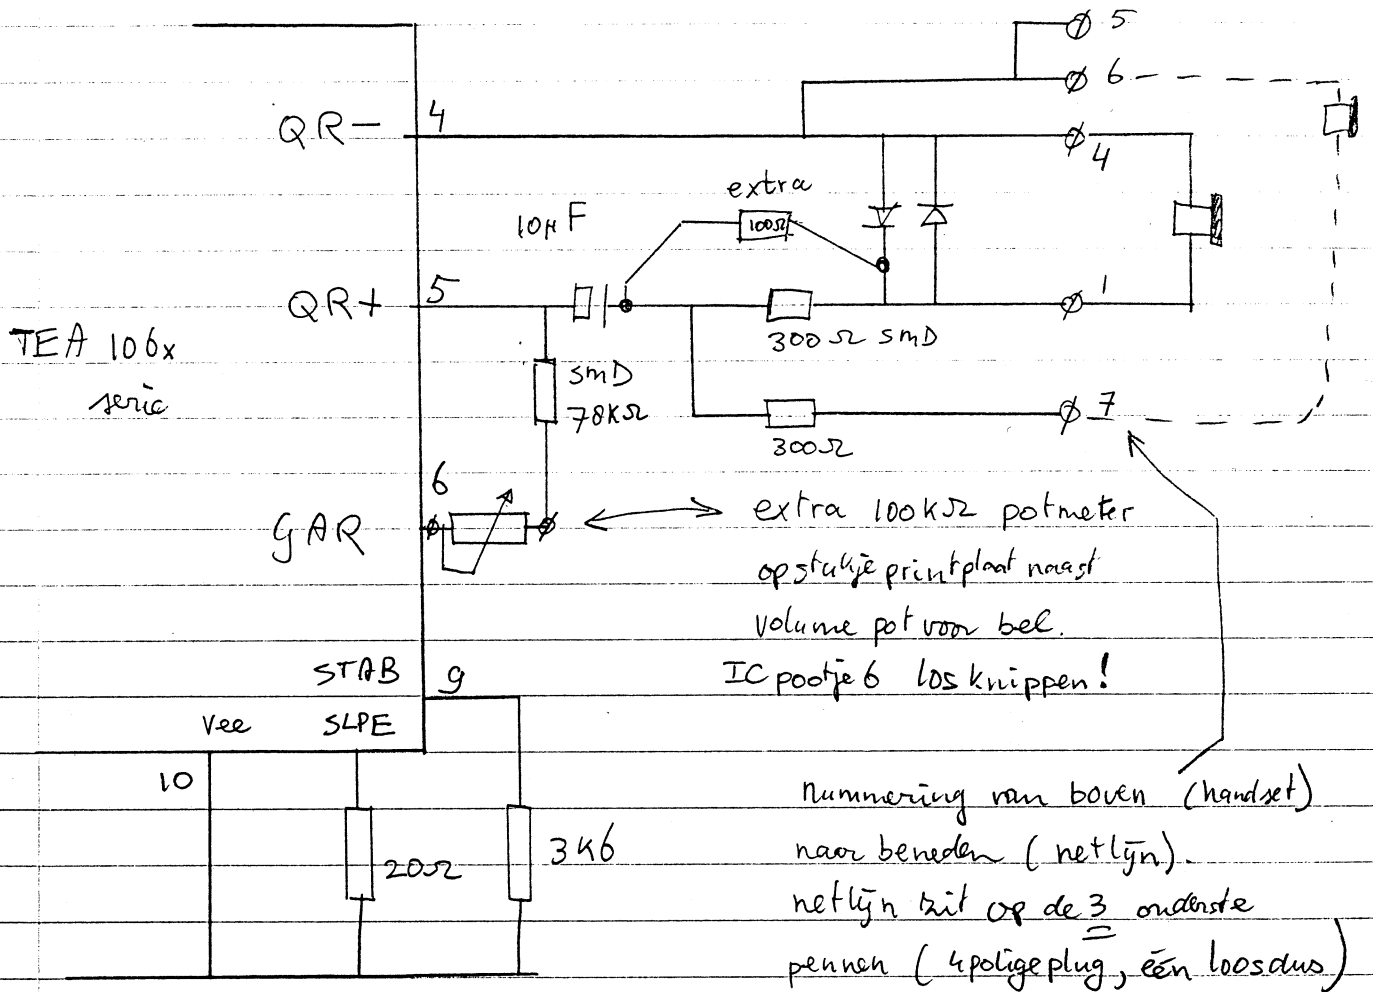 5
6
QR- 4
4
extra
10µF
100Ω
QR+ 5
1
TEA 106x
serie
300Ω smD
smD
78KΩ
7
300Ω
6
GAR
extra 100KΩ potmeter
op stukje printplaat naast
volume pot voor bel.
IC pootje 6 los knippen!
STAB 9
Vee SLPE
10
20Ω
3K6
nummering van boven (handset)
naar beneden (netlijn).
netlijn zit op de 3 onderste
pennen (4polige plug, één loos dus)